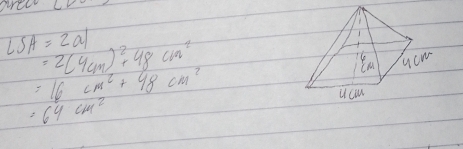 LSA = 2al
= 2(4cm)² + 48 cm²
= 16 cm² + 48 cm²
= 64 cm²
6 cm
4cm
4cm